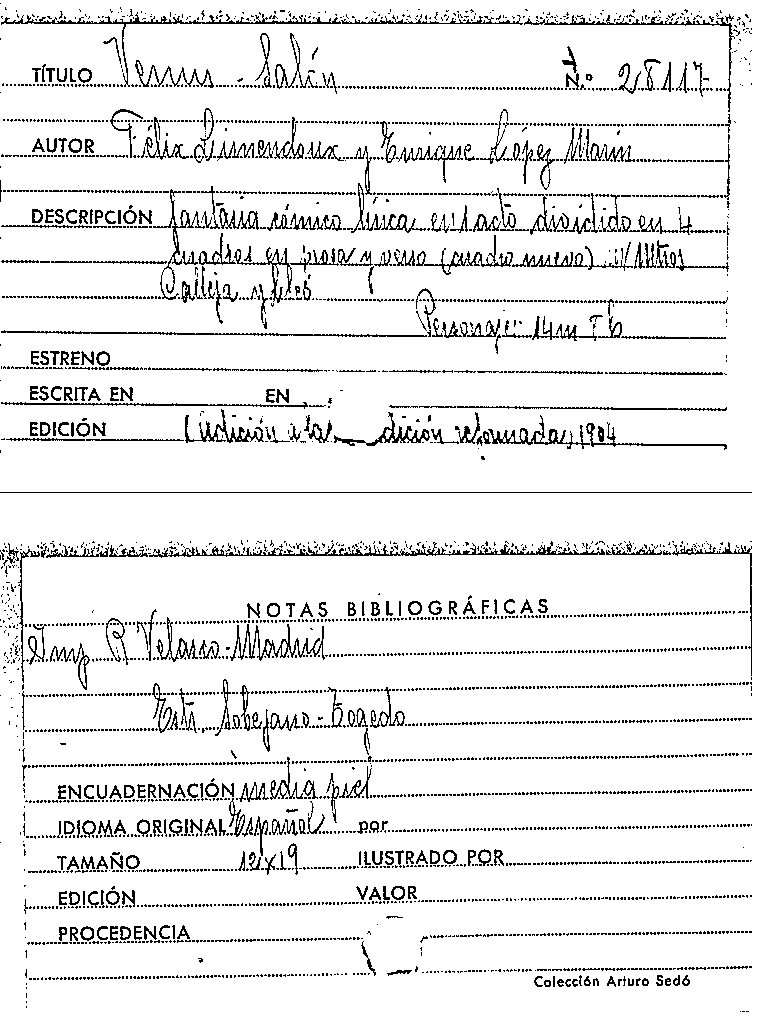 TÍTULO Venus - Salón N.º 28117
AUTOR Félix Limendoux y Enrique López Marín
DESCRIPCIÓN fantasia cómico lírica en 1 acto dividido en 4
cuadros en prosa y verso (cuadro nuevo)
Calleja y Lleó
Personajes: 14 m 7 b
ESTRENO
ESCRITA EN EN
EDICIÓN (adición a la dición reformada) 1904
NOTAS BIBLIOGRÁFICAS
Imp R Velasco - Madrid
Estr. Sobejano -
ENCUADERNACIÓN media piel
IDIOMA ORIGINAL Español por
TAMAÑO 12x19 ILUSTRADO POR
EDICIÓN VALOR
PROCEDENCIA
Colección Arturo Sedó